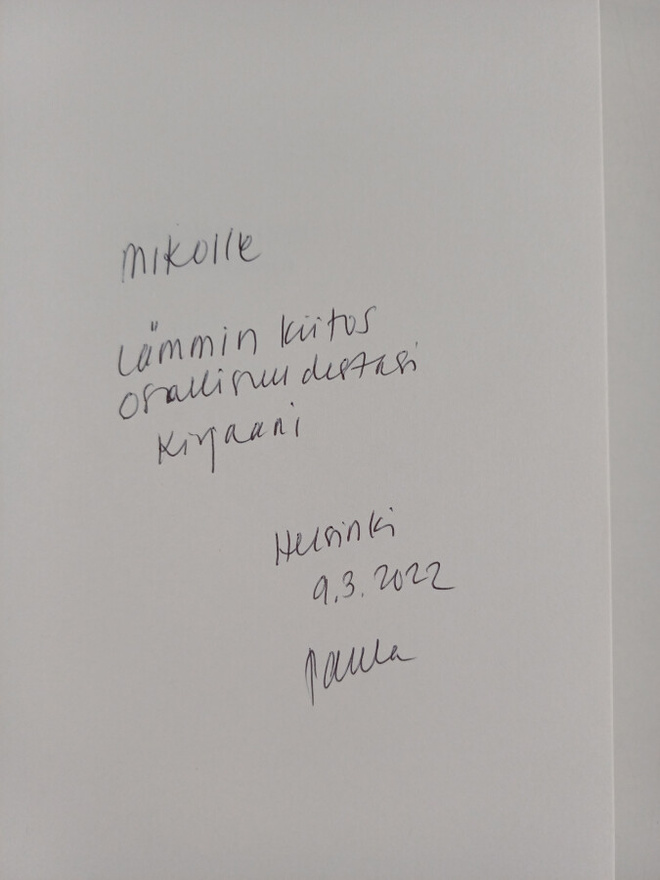 Mikolle
Lämmin kiitos
osallisuudestasi
kirjaani
Helsinki
9.3.2022
Paula